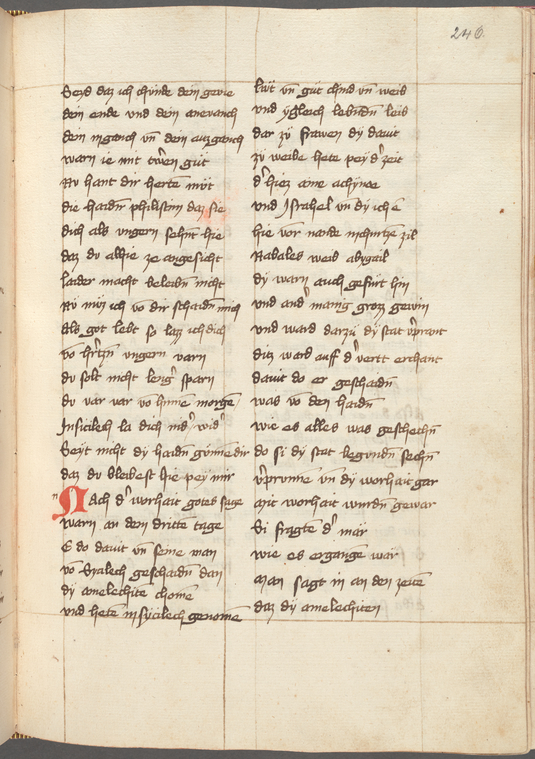 240.
Seyd daz ich chünde dein gevie
dein ende und dein anevanch
dein inganch vn̄ dein auzganch
warn ie mit trewn güt
Nv hant dir herte müt
die haidn̄ philistim daz sie
dich als ungern sehn̄t hie
daz dv alhie ze angesicht
laider macht beleibn̄ nicht
Nv müz ich vō dir schaidn̄ mich
Als got lebt so laz ich dich
vō hr̄tzn̄ ungern varn
dv solt nicht leng' sparn
dv var var vō hinne morgē
In sicilech la dich nid' wid'
Seyt nicht dÿ haidn̄ günnē dir
daz dv bleibest hie pey mir
Nach d' worhait gotes sage
warn an dem dritten tage
E do dauit vn̄ seine man
vō Syalech geschaidn̄ dan
dÿ amelechite chomē
und hetē in sÿcilech genomē
läut vn̄ güt chind vn̄ weib
vnd ygleich lebn̄dn̄ leib
dar zü frawen dÿ dauit
zü weibe hete pey d' zeit
d' hiez aine achÿnoe
und Israhel vn̄ dÿ ich ē
hie vor nande in churtzē zil
Nabales weib abygail
dÿ warn auch gefürt hin
vnd and' manig grozz gewin
vnd ward darzü dÿ stat v'prant
ditz ward auff d' vertt erchant
dauit do er geschaidn̄
was vō den haidn̄
wie es alles was geschechn̄
do si dÿ stat begundn̄ sechn̄
v'prunnē vn̄ dÿ worhait gar
mit worhait wurdn̄ gewar
Si fragtē d' mär
wie es ergangē wär
Man sagt in an den zeitē
daz dÿ amelechiten